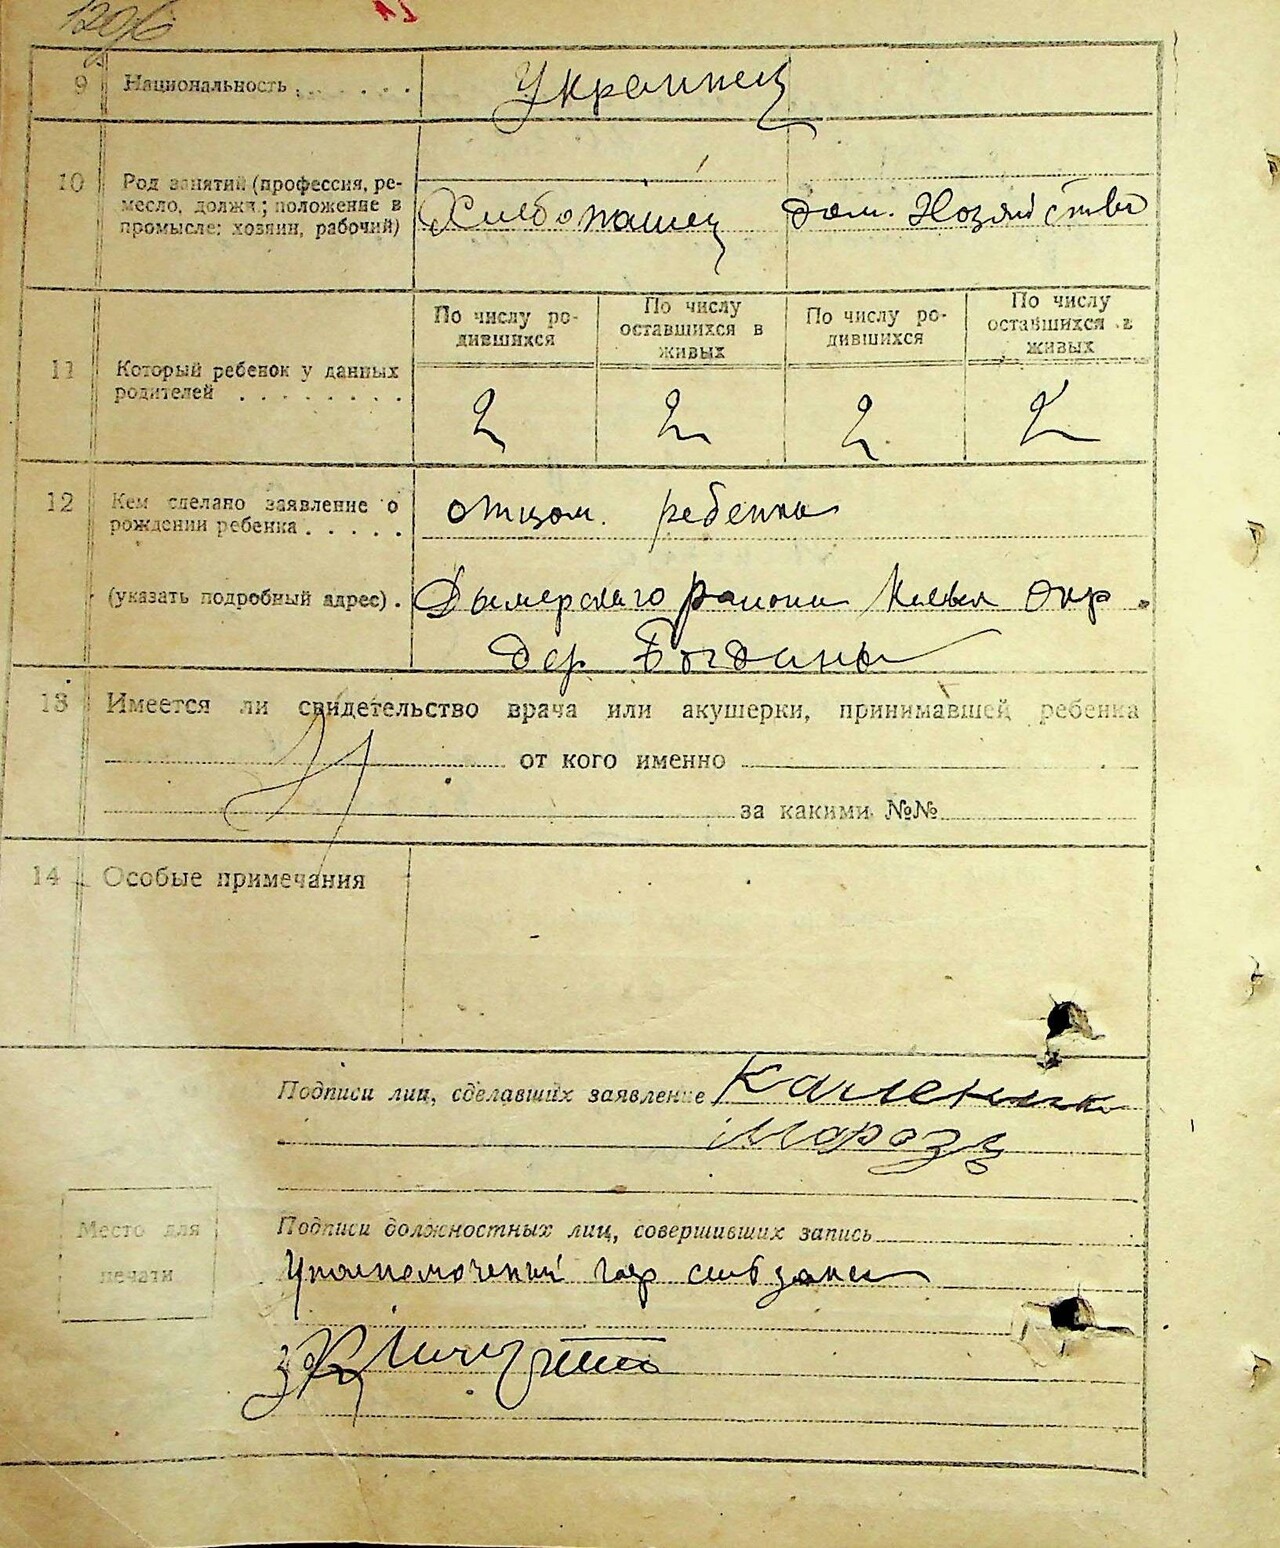 1296
9 Национальность . . . . . . Украинец
10 Род занятий (профессия, ре-
месло, должн.; положение в
промысле: хозяин, рабочий) Хлебопашец дом. Хозяйство
По числу ро-
дившихся
По числу
оставшихся в
живых
По числу ро-
дившихся
По числу
оставшихся в
живых
11 Который ребенок у данных
родителей . . . . . . . . 2 2 2 2
12 Кем сделано заявление о
рождении ребенка . . . . . отцом ребенка
(указать подробный адрес) . Дымерского района Киевск Окр.
дер Богданы
13 Имеется ли свидетельство врача или акушерки, принимавшей ребенка
от кого именно
за какими №№
14 Особые примечания
Подписи лиц, сделавших заявление
Мороз
Место для
печати
Подписи должностных лиц, совершивших запись
Уполномоченный